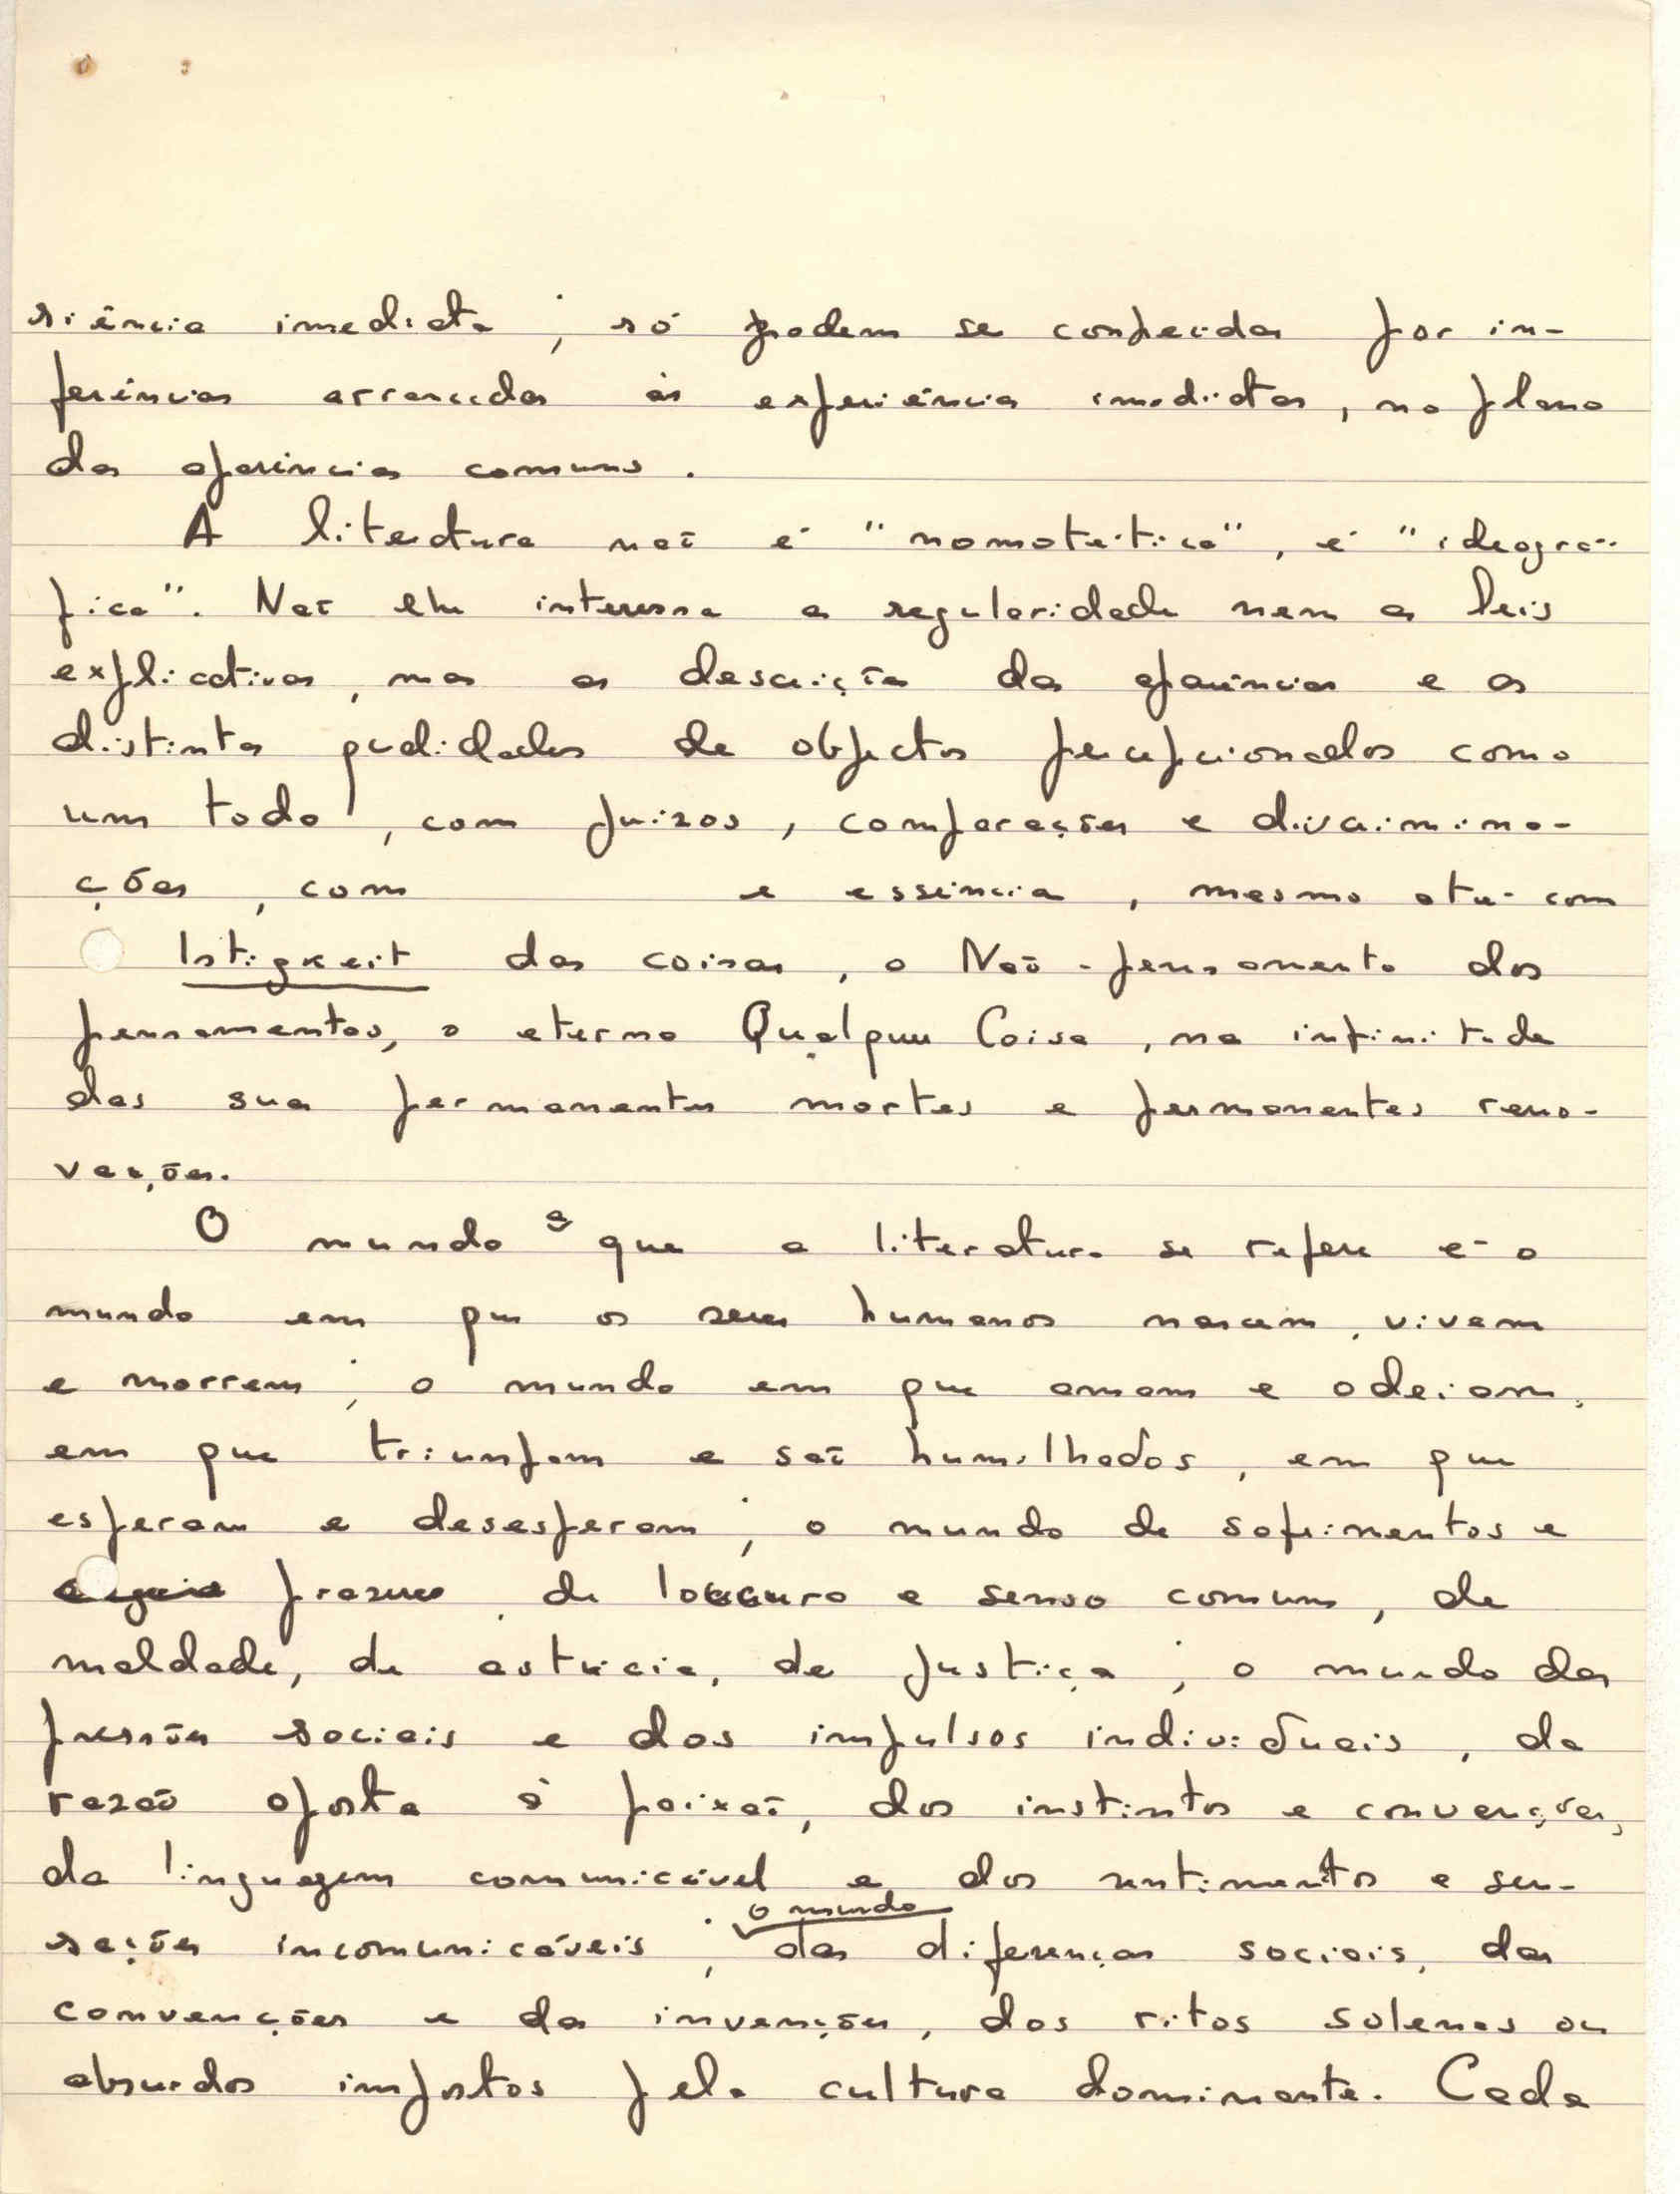 riência imediata; só podem ser conhecidas por in-
ferências arrancadas às experiências imediatas, no plano
das aparências comuns.
A literatura não é "nomotética", é "ideográ-
fica". Não lhe interessa a regularidade nem as leis
explicativas, mas as descrições das aparências e as
distintas qualidades de objectos percepcionados como
um todo, com juizos, comparações e discrimina-
ções, com e essência, mesmo até com
Istigkeit das coisas, o Não-pensamento dos
pensamentos, o eterno Qualquer Coisa, na infinitude
das suas permanentes mortes e permanentes reno-
vações.
O mundo a que a literatura se refere é o
mundo em que os seres humanos nascem, vivem
e morrem; o mundo em que amam e odeiam,
em que triunfam e são humilhados, em que
esperam e desesperam; o mundo de sofrimentos e
prazeres, de loucura e senso comum, de
maldade, de astúcia, de justiça; o mundo das
pressões sociais e dos impulsos individuais, da
razão oposta à paixão, dos instintos e convenções,
da linguagem comunicável e dos sentimentos e sen-
sações incomunicáveis; o mundo das diferenças sociais, das
convenções e das invenções, dos ritos solenes ou
absurdos impostos pela cultura dominante. Cada